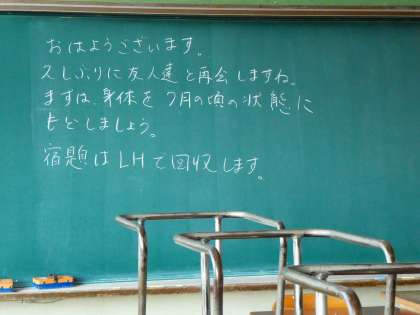 おはようございます。
久しぶりに友人達と再会しますね。
まずは、身体を7月の頃の状態に
もどしましょう。
宿題はLHで回収します。